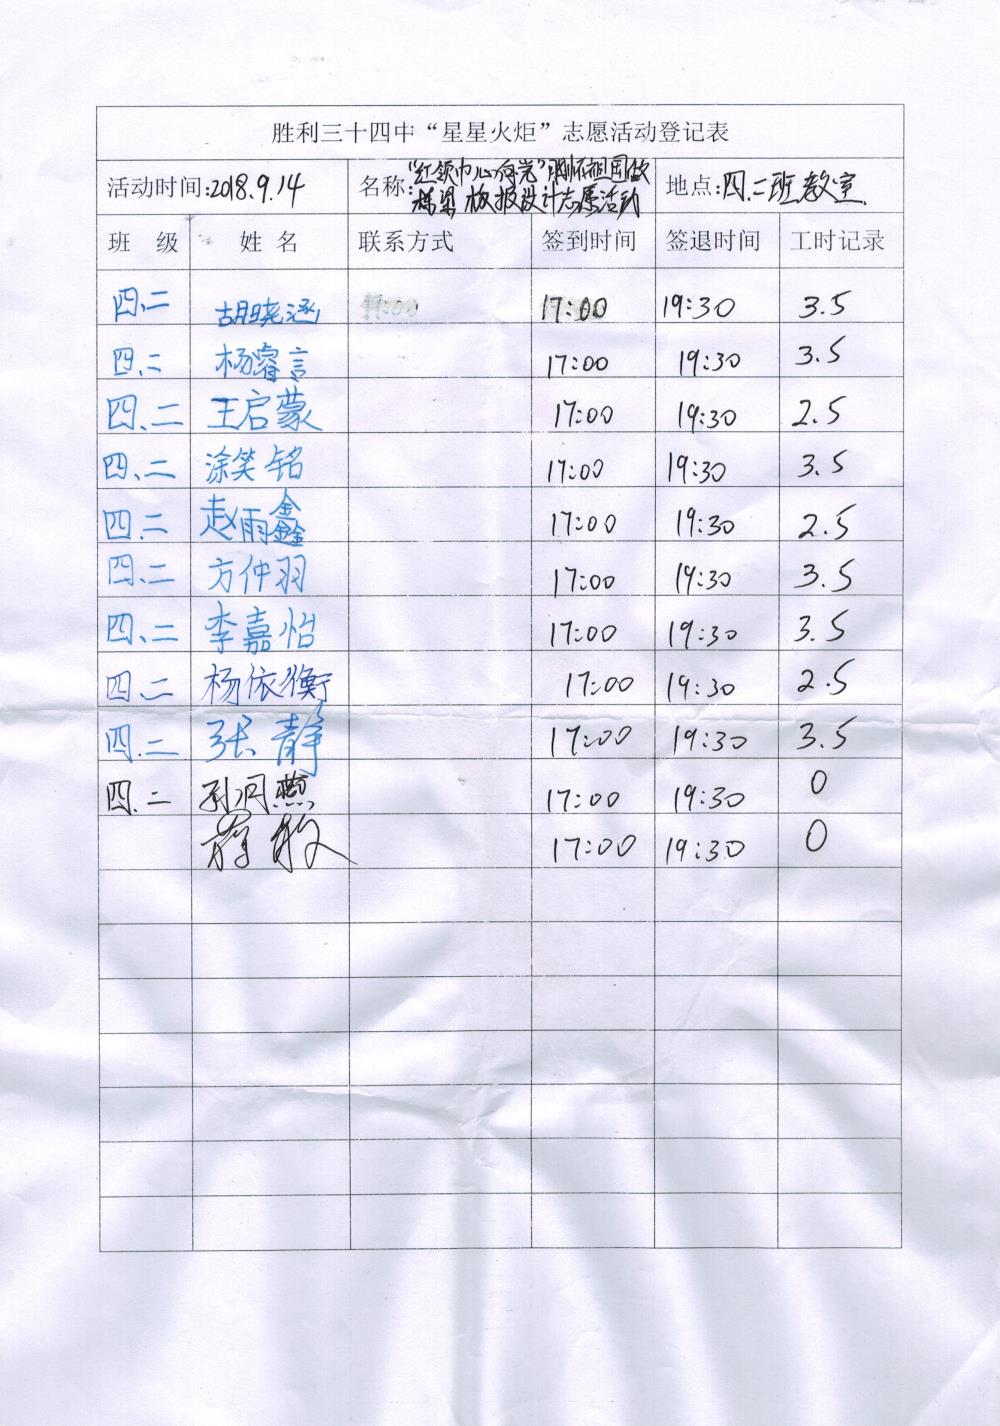 胜利三十四中“星星火炬”志愿活动登记表
活动时间:2018.9.14 名称:“红领巾心向党”胸怀祖国做栋梁 板报设计志愿活动 地点:四.二班教室.
班 级 姓 名 联系方式 签到时间 签退时间 工时记录
四、二 胡晓涵 17:00 17:00 19:30 3.5
四.二 杨睿言 17:00 19:30 3.5
四、二 王启蒙 17:00 19:30 2.5
四.二 涂笑铭 17:00 19:30 3.5
四.二 赵雨鑫 17:00 19:30 2.5
四.二 方仲羽 17:00 19:30 3.5
四、二 李嘉怡 17:00 19:30 3.5
四.二 杨依衡 17:00 19:30 2.5
四.二 张静 17:00 19:30 3.5
四.二 17:00 19:30 0
17:00 19:30 0